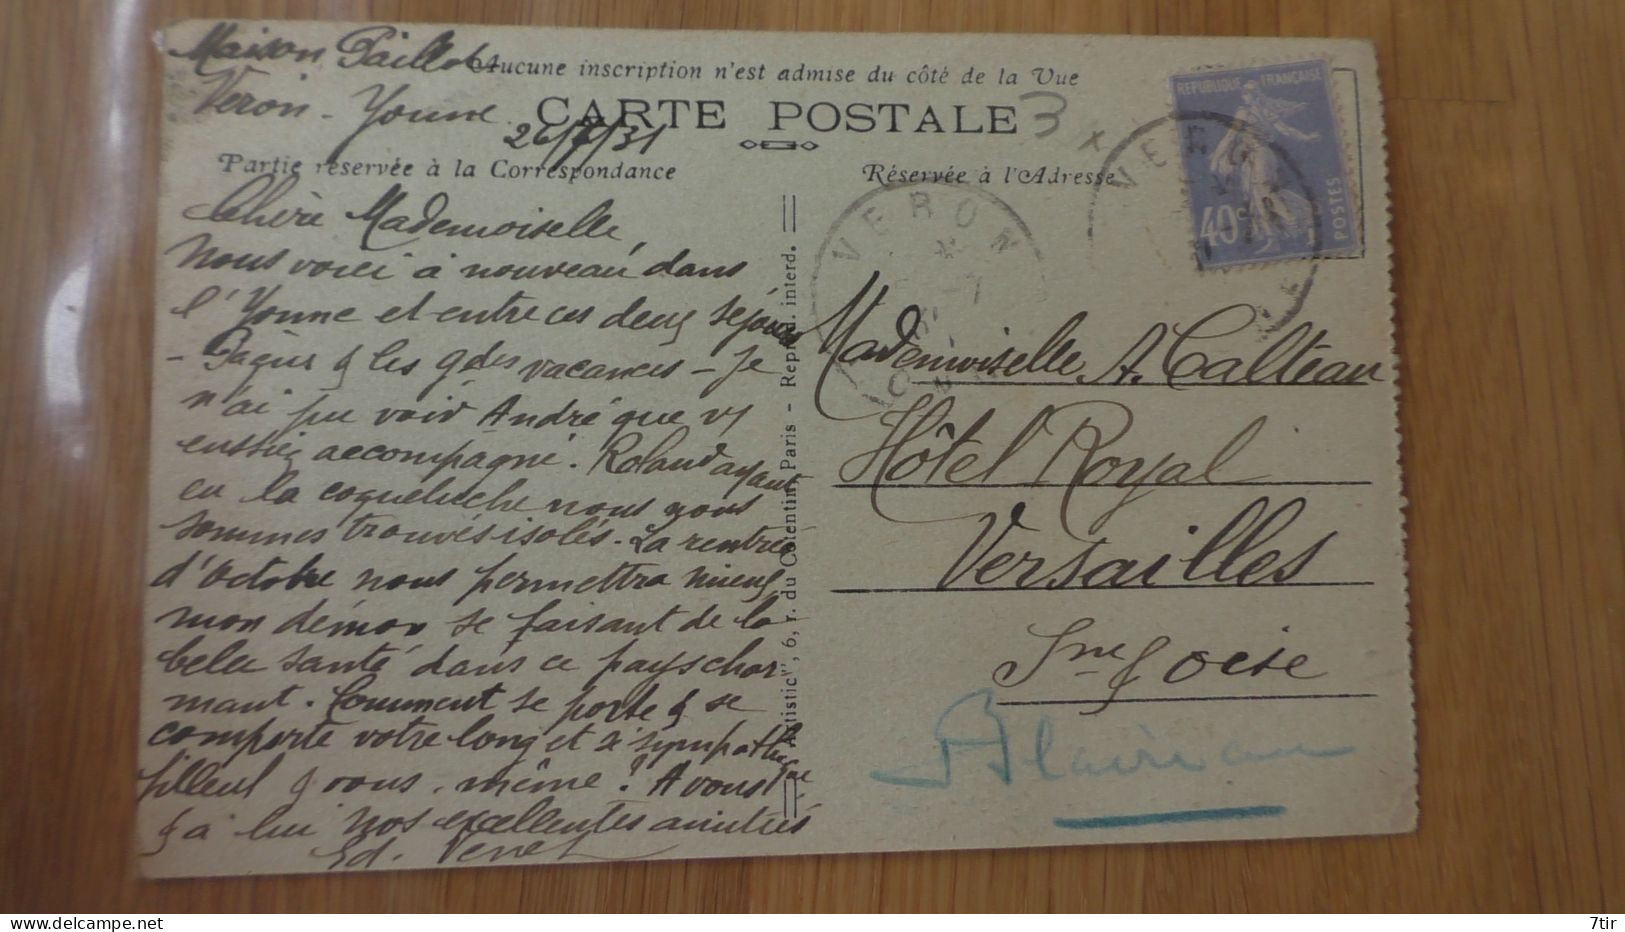 Maison Paillot
Veron - Yonne
Aucune inscription n'est admise du côté de la Vue
CARTE POSTALE
3
26/7/31
Partie réservée à la Correspondance
Réservée à l'Adresse
Chère Mademoiselle,
Nous voici à nouveau dans
l'Yonne et entre ces deux séjours
- Pâques & les gdes vacances - je
n'ai pu voir André que vs
eussiez accompagné. Roland ayant
eu la coqueluche nous nous
sommes trouvés isolés. La rentrée
d'Octobre nous permettra mieux
mon démon se faisant de la
belle santé dans ce pays char-
mant. Comment se porte & se
comporte votre long et si sympathique
filleul & vous, même ? A vous
& à lui nos excellentes amitiés
Ed. Venet
"Artistic", 6, r. du Cotentin, Paris - Reprod. interd.
REPUBLIQUE FRANÇAISE
40c
POSTES
VERON
VERON
Mademoiselle A. Calteau
Hôtel Royal
Versailles
Sne & Oise
7tir